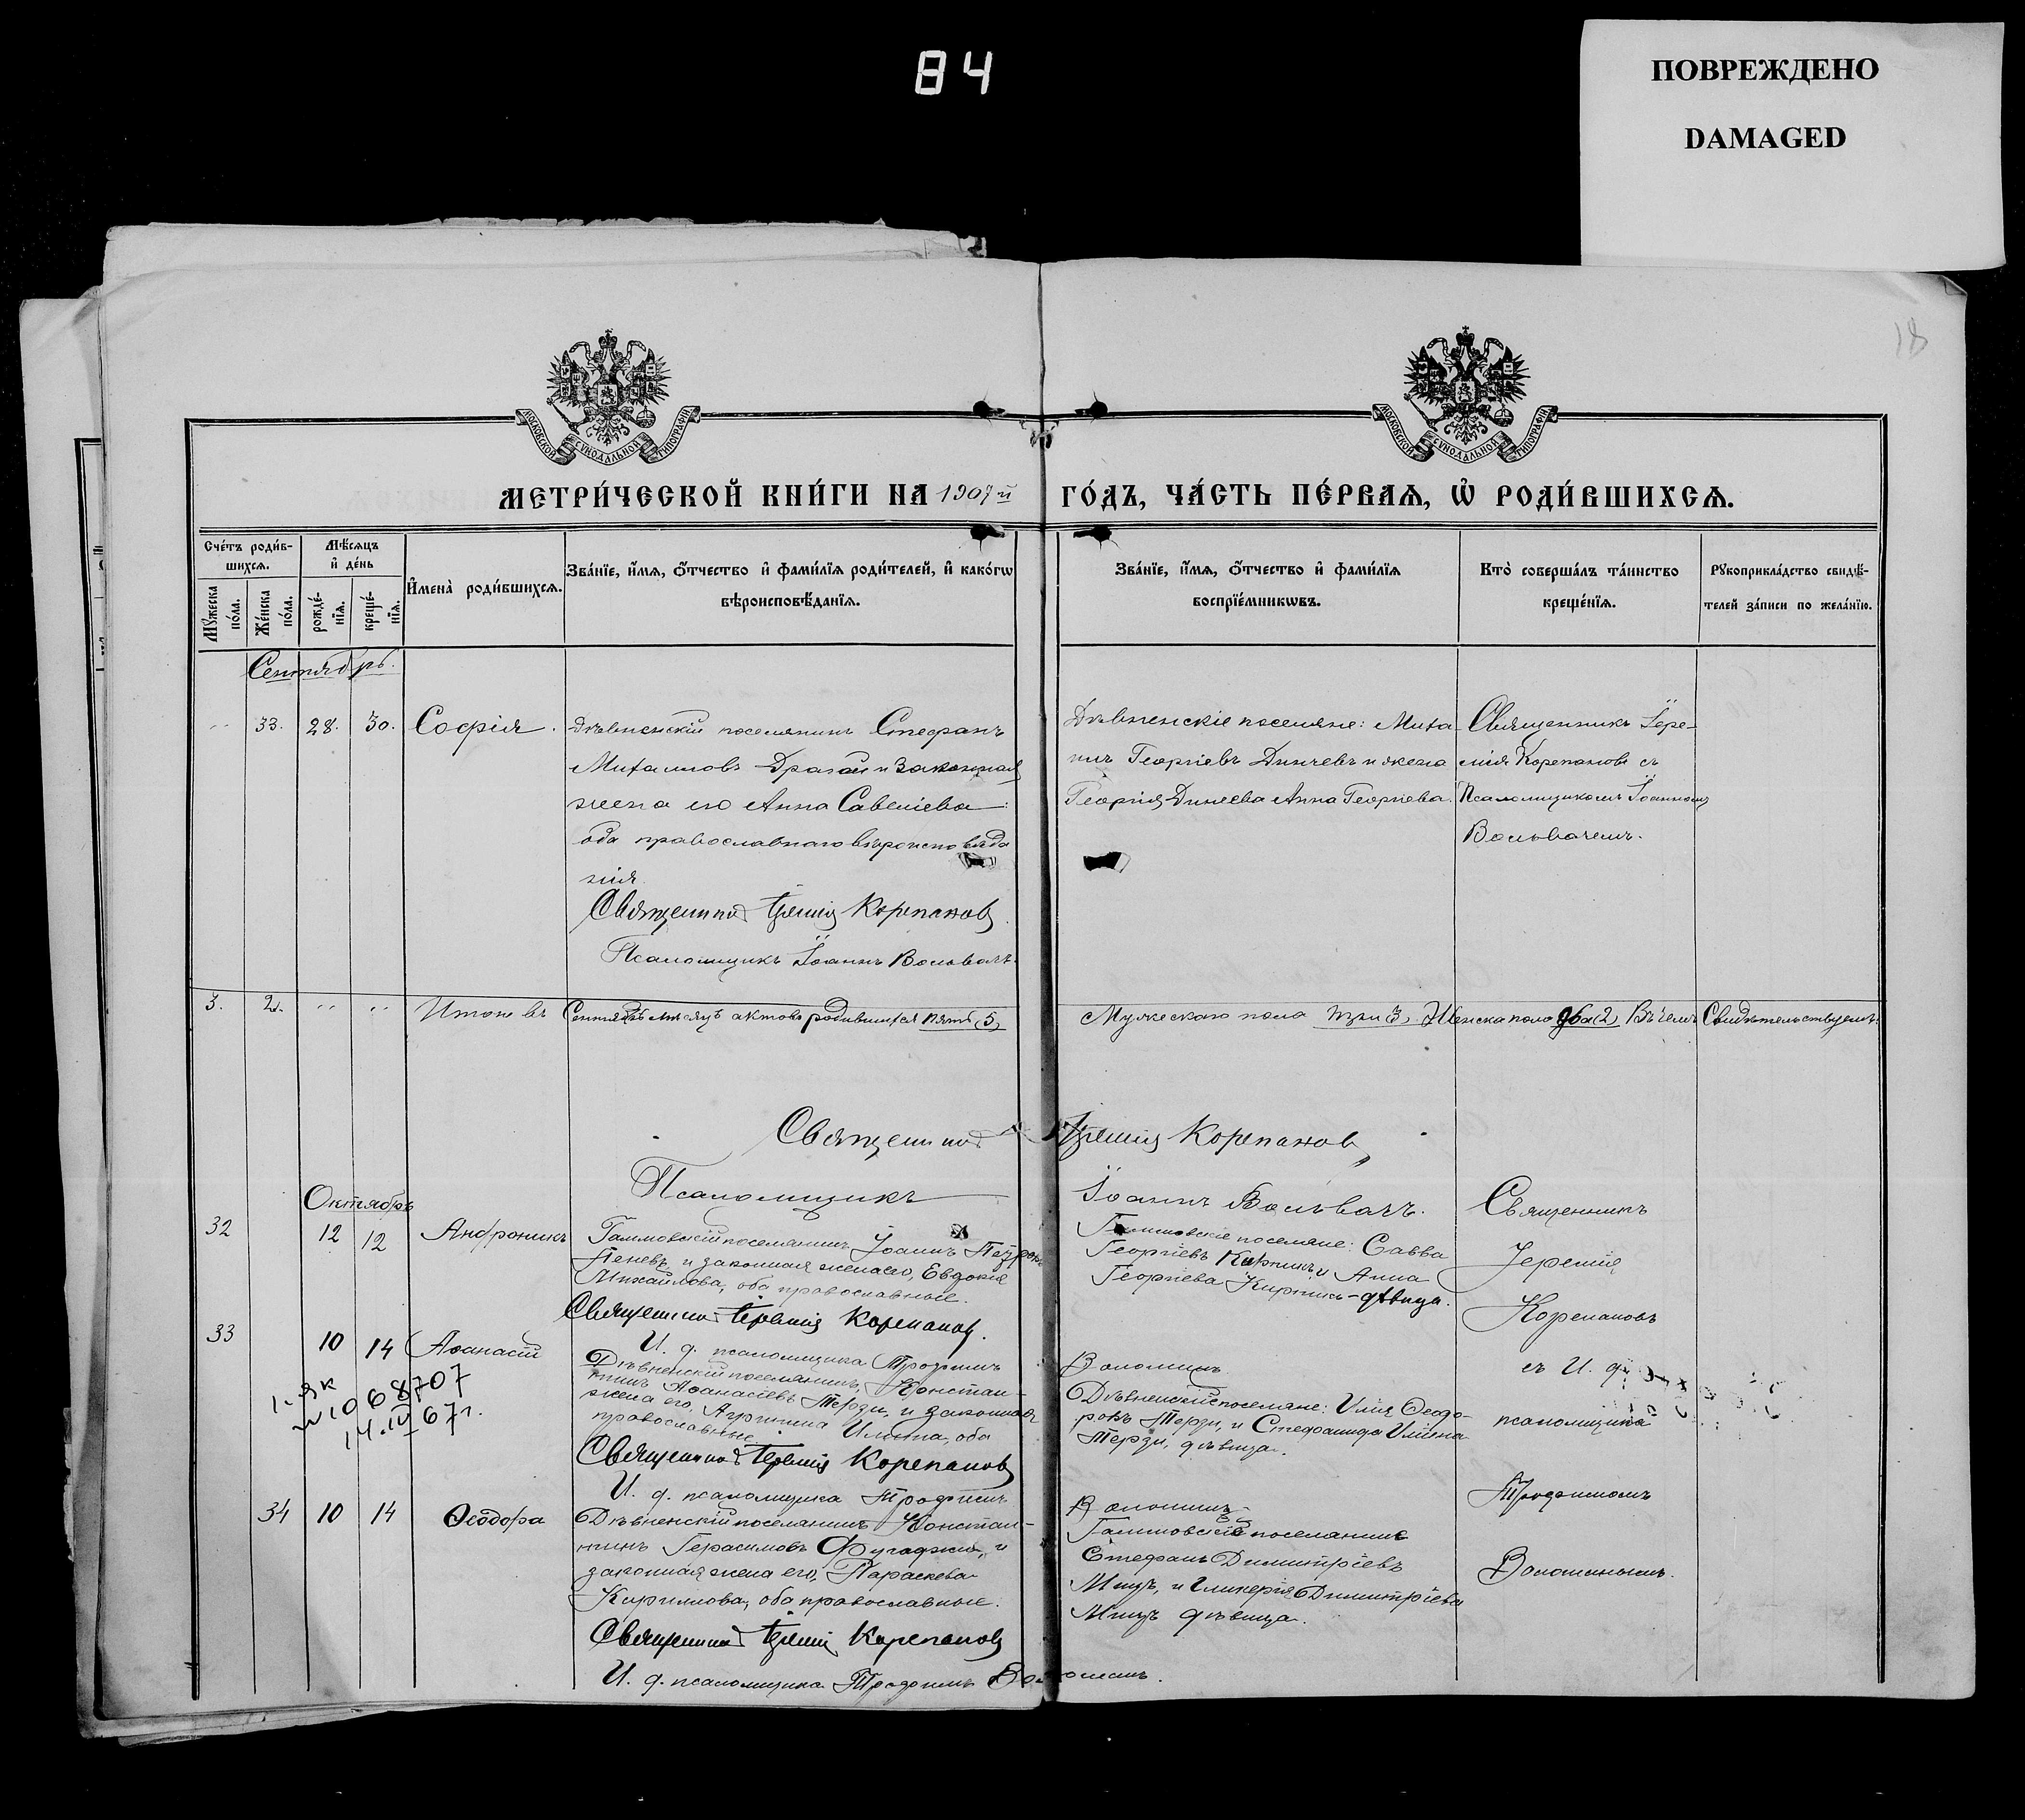 84
ПОВРЕЖДЕНО
DAMAGED
18
МОСКОВСКОЙ СѴНОДАЛЬНОЙ ТИПОГРАФІИ
МОСКОВСКОЙ СѴНОДАЛЬНОЙ ТИПОГРАФІИ
МЕТРИ́ЧЕСКОЙ КНИ́ГИ НА 1907 й ГО́ДЪ, ЧА́СТЬ ПЕ́РВАѦ, Ѡ҆ РОДИ́ВШИХСѦ.
Сче́тъ роди́в-
шихсѧ.
Мꙋ́жеска по́ла.
Же́нска по́ла.
Мѣ́сѧцъ
и҆ де́нь
рожде́-
нїѧ.
креще́-
нїѧ.
И҆мена̀ роди́вшихсѧ.
Зва́нїе, и҆́мѧ, ѻ҆́тчество и҆ фами́лїѧ роди́телей, и҆ како́гѡ
вѣроисповѣ́данїѧ.
Зва́нїе, и҆́мѧ, ѻ҆́тчество и҆ фами́лїѧ
воспрїе́мникѡвъ.
Кто̀ соверша́лъ та́инство
креще́нїѧ.
Рꙋкоприкла́дство свидѣ́-
телей за́писи по жела́нїю.
Сентябрь.
33. 28. 30. Софія.
Дѣвненскій поселянинъ Стефанъ
Михаиловъ Драган и законная
жена его Анна Савеліева
оба православнаго вѣроисповѣда
нія
Священникъ Іеремія Корепановъ
Псаломщикъ Іоаннъ Вольвачъ.
Дѣвненскіе поселяне: Миха
илъ Георгіевъ Динчевъ и жена
Георгія Динчева Анна Георгіева.
Священникъ Іере-
мія Корепановъ съ
Псаломщикомъ Іоанномъ
Вольвачемъ.
3. 2. Итого въ Сентябрѣ мѣсяцѣ актовъ родившихся пять (5) Мужескаго пола три (3) Женска пола два (2) Въ чемъ Свидѣтельствуемъ:
Священникъ Іеремія Корепановъ
Псаломщикъ Іоаннъ Вольвачъ.
Октябрь
32 12 12 Андроникъ
Іоаннъ Петровъ
Пеневъ, и законная жена его, Евдокія
Михайлова, оба православные.
Священникъ Іеремія Корепановъ.
И. д. псаломщика Трофимъ Волошинъ
поселяне: Савва
Георгіевъ и Анна
Георгіева - дѣвица.
Священникъ
Іеремія
Корепановъ
съ И. д.
псаломщика
Трофимомъ
Волошинымъ.
33 10 14 Аѳанасій
Дѣвненскій поселянинъ, Констан-
тинъ Аѳанасіевъ Терзи, и законная
жена его, Агрипина Ильина, оба
православные.
Священникъ Іеремія Корепановъ
И. д. псаломщика Трофимъ Волошинъ
Дѣвненскіе поселяне: Илія Ѳеодо-
ровъ Терзи, и Стефанида Иліина
Терзи, дѣвица.
I-ЯК
№ 1068707
14.IV 67г.
34 10 14 Ѳеодора
Дѣвненскій поселянинъ Констан-
тинъ Герасимовъ и
законная жена его, Параскева
Кириллова, оба православные.
Священникъ Іеремія Корепановъ
И. д. псаломщика Трофимъ Волошинъ.
поселяне
Стефанъ Димитріевъ
и Гликерія Димитріева
дѣвица.